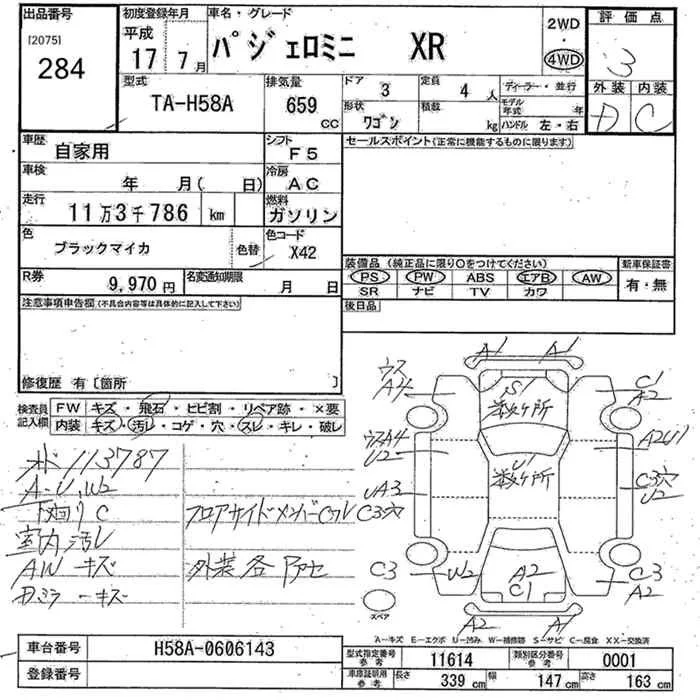 出品番号 初度登録年月 車名・グレード 評価点
[2075] 平成 2WD
284 17年 7月 パジェロミニ XR ・ 3
4WD
外装 内装
D C
型式 排気量 ドア 3 定員 4人 ディーラー・並行
TA-H58A 659cc 形状 ワゴン 積載 kg モデル年式 年
ハンドル 左・右
車歴 自家用 シフト F5 セールスポイント(正常に機能するものに限ります)
車検 年 月( 日) 冷房 AC
走行 11万3千786 km 燃料 ガソリン
色 ブラックマイカ 色替 色コード X42
装備品(純正品に限り○をつけてください) 新車保証書
R券 9,970円 名変通知期限 月 日 PS PW ABS エアB AW 有・無
SR ナビ TV カワ
注意事項申告欄(不具合内容等は具体的に記入して下さい) 後日品
修復歴 有〔箇所 〕
検査員記入欄 FW キズ・飛石・ヒビ割・リペア跡・×要
内装 キズ・汚レ・コゲ・穴・スレ・キレ・破レ
A1 A1
ウス A4 S1 数ヶ所 C1 A2
ウスA4 U2 U1 数ヶ所 A2U1
UA3 C3穴 C3穴 U2
C3 W2 A2 C1 C3 A2
A2 A1
113787
A-U,W2
下廻りC フロアサイドメンバーCワレ
室内汚レ
AWキズ 外装各
キズ
スペア
A-キズ E-エクボ U-凹み W-補修跡 S-サビ C-腐食 XX-交換済
車台番号 H58A-0606143 型式指定番号 参考 11614 類別区分番号 参考 0001
登録番号 車庫証明用 参考 長さ 339cm 幅 147cm 高さ 163cm